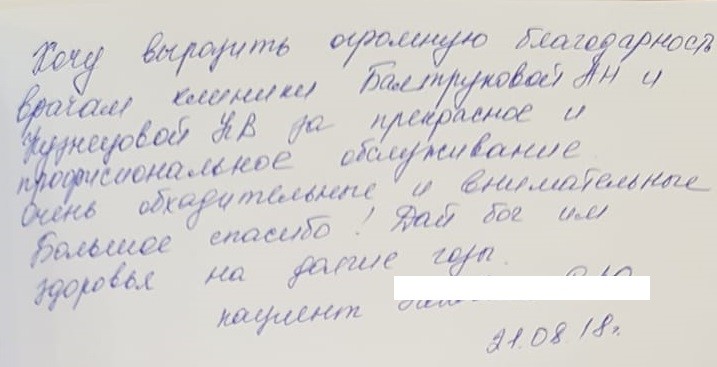 Хочу выразить огромную благодарность
врачам клиники Балтруковой АН и
Кузнецовой КВ за прекрасное и
профисиональное обслуживание
Очень обходительные и внимательные
Большое спасибо! Дай бог им
здоровья на долгие годы.
пациент
21.08.18г.